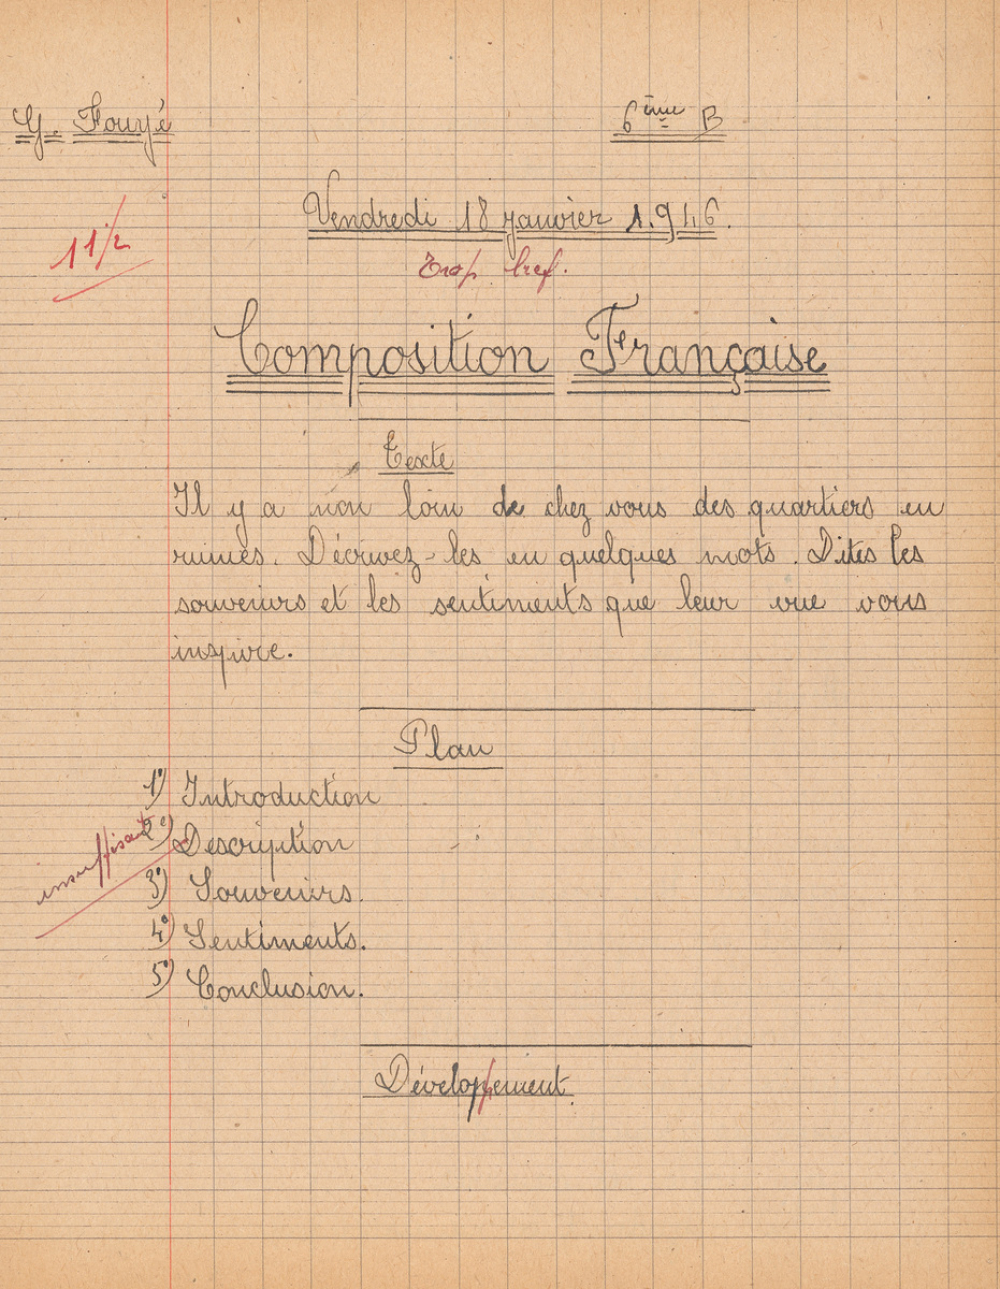 G. Fouyé
6ème B
Vendredi 18 janvier 1.946.
11/2
Trop bref.
Composition Française
Texte
Il y a non loin de chez vous des quartiers en
ruines. Décrivez-les en quelques mots. Dites les
souvenirs et les sentiments que leur vue vous
inspire.
Plan
1°) Introduction
2°) Description
insuffisant
3°) Souvenirs.
4°) Sentiments.
5°) Conclusion.
Développement.